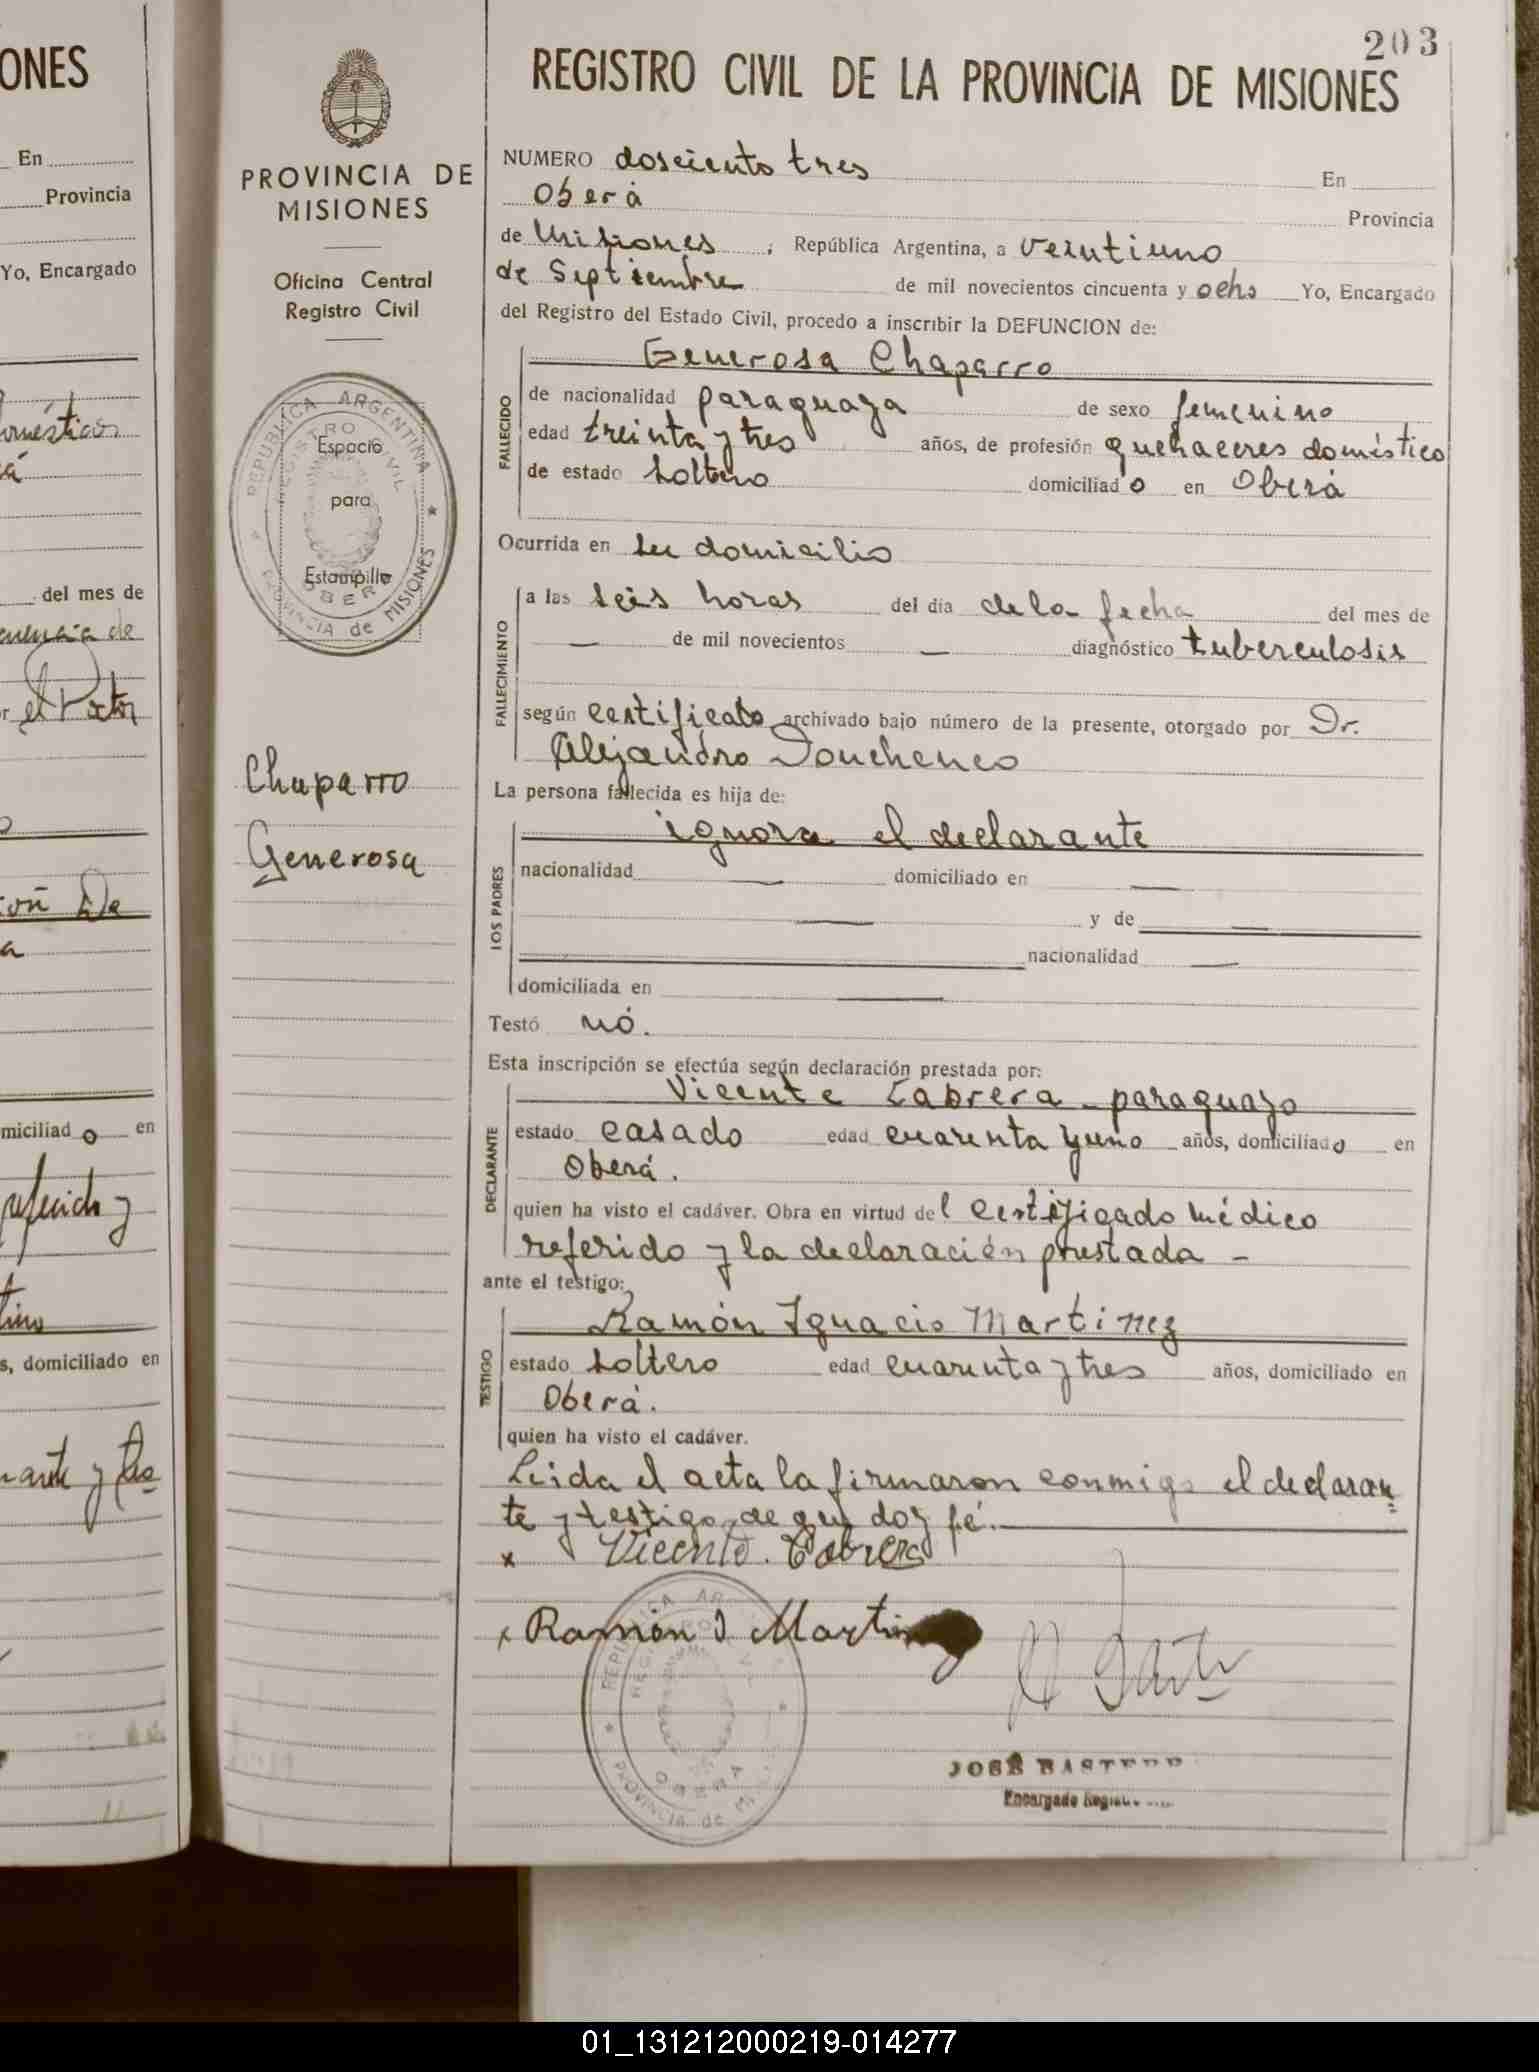 203
REGISTRO CIVIL DE LA PROVINCIA DE MISIONES
PROVINCIA DE
MISIONES
Oficina Central
Registro Civil
REPUBLICA ARGENTINA
REGISTRO CIVIL
Espacio
para
Estampilla
OBERA
PROVINCIA de MISIONES
Chaparro
Generosa
NUMERO dosciento tres En
Oberá Provincia
de Misiones, República Argentina, a veintiuno
de Septiembre de mil novecientos cincuenta y ocho Yo, Encargado
del Registro del Estado Civil, procedo a inscribir la DEFUNCION de:
Generosa Chaparro
FALLECIDO
de nacionalidad paraguaya de sexo femenino
edad treinta y tres años, de profesión quehaceres doméstico
de estado soltero domiciliado en Oberá
Ocurrida en su domicilio
FALLECIMIENTO
a las seis horas del día de la fecha del mes de
— de mil novecientos — diagnóstico tuberculosis
según certificato archivado bajo número de la presente, otorgado por Dr.
Alejandro Douchenco
La persona fallecida es hija de:
ignora el declarante
LOS PADRES
nacionalidad — domiciliado en —
— y de —
nacionalidad —
domiciliada en —
Testó nó.
Esta inscripción se efectúa según declaración prestada por:
Vicente Cabrera - paraguayo
DECLARANTE
estado casado edad cuarenta y uno años, domiciliado en
Oberá.
quien ha visto el cadáver. Obra en virtud del certifigado médico
referido y la declaración prestada -
ante el testigo:
Ramón Ignacio Martinez
TESTIGO
estado soltero edad cuarenta y tres años, domiciliado en
Oberá.
quien ha visto el cadáver.
Leida el acta la firmaron conmigo el declaran-
te y testigo de que doy fé.
x Vicente Cabrera
x Ramón I Martinez
JOSÉ
Encargado
ONES
En
Provincia
Yo, Encargado
del mes de
el Doctor
miciliado en
referido y
s, domiciliado en
01_131212000219-014277